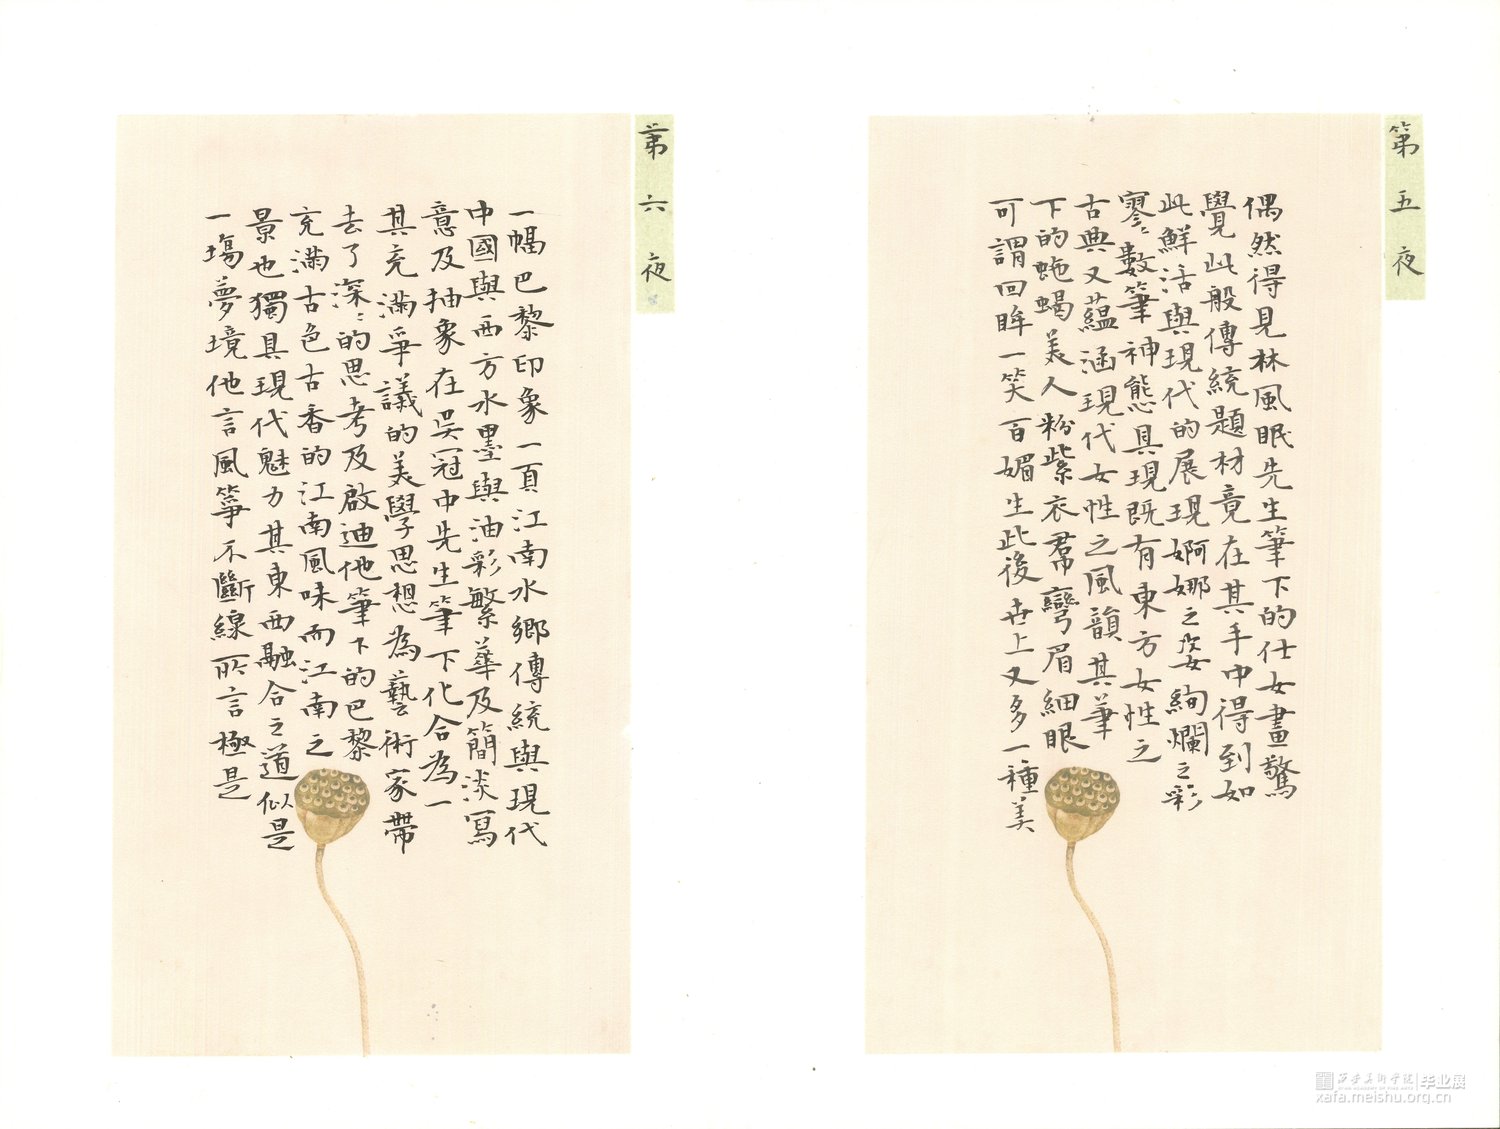 第五夜
偶然得見林風眠先生筆下的仕女畫驚
覺此般傳統題材竟在其手中得到如
此鮮活與現代的展現婀娜之姿絢爛之彩
寥〻數筆神態具現既有東方女性之
古典又蘊涵現代女性之風韻其筆
下的蛇蝎美人粉紫衣羣彎眉細眼
可謂回眸一笑百媚生此後世上又多一種美
第六夜
一幅巴黎印象一頁江南水鄉傳統與現代
中國與西方水墨與油彩繁華及簡淡寫
意及抽象在吴冠中先生筆下化合為一
其充滿爭議的美學思想為藝術家帶
去了深〻的思考及啟迪他筆下的巴黎
充滿古色古香的江南風味而江南之
景也獨具現代魅力其東西融合之道似是
一塲夢境他言風箏不斷線所言極是
西安美術學院 毕业展
xafa.meishu.org.cn